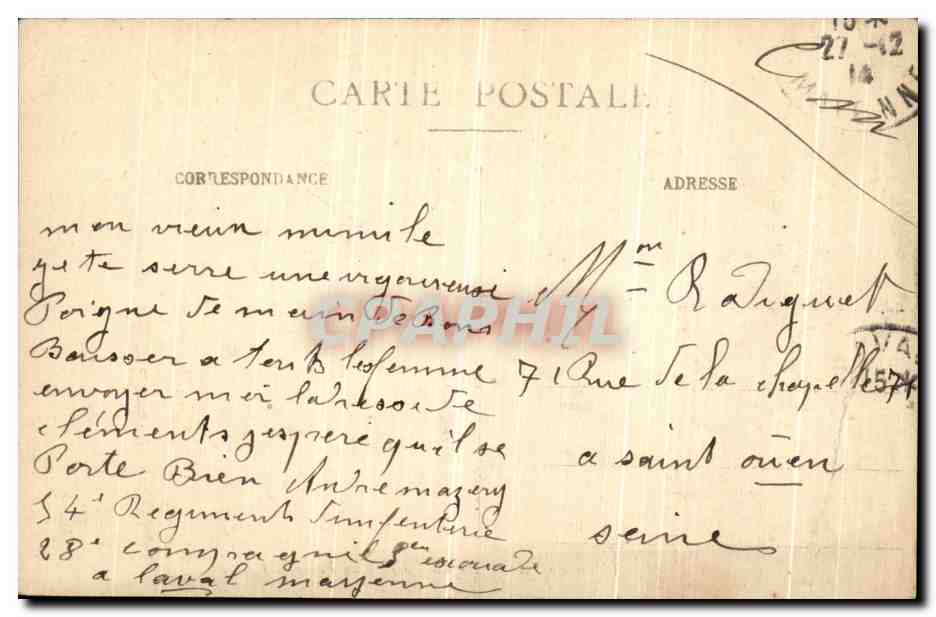 CARTE POSTALE
CORRESPONDANCE
ADRESSE
27-12
14
mon vieux mimile
je te serre une vigoureuse
Poigne de main de Bons
Baisser a tout les femme
envoyer moi ladresse de
cléments jespere quil se
Porte Bien André mazery
54e Regiment dinfenterie
28e compagnie 8em escouade
a laval mayenne
Mon Radiguet
71 Rue de la chapelle 71
a saint ouen
seine
CPAPHIL